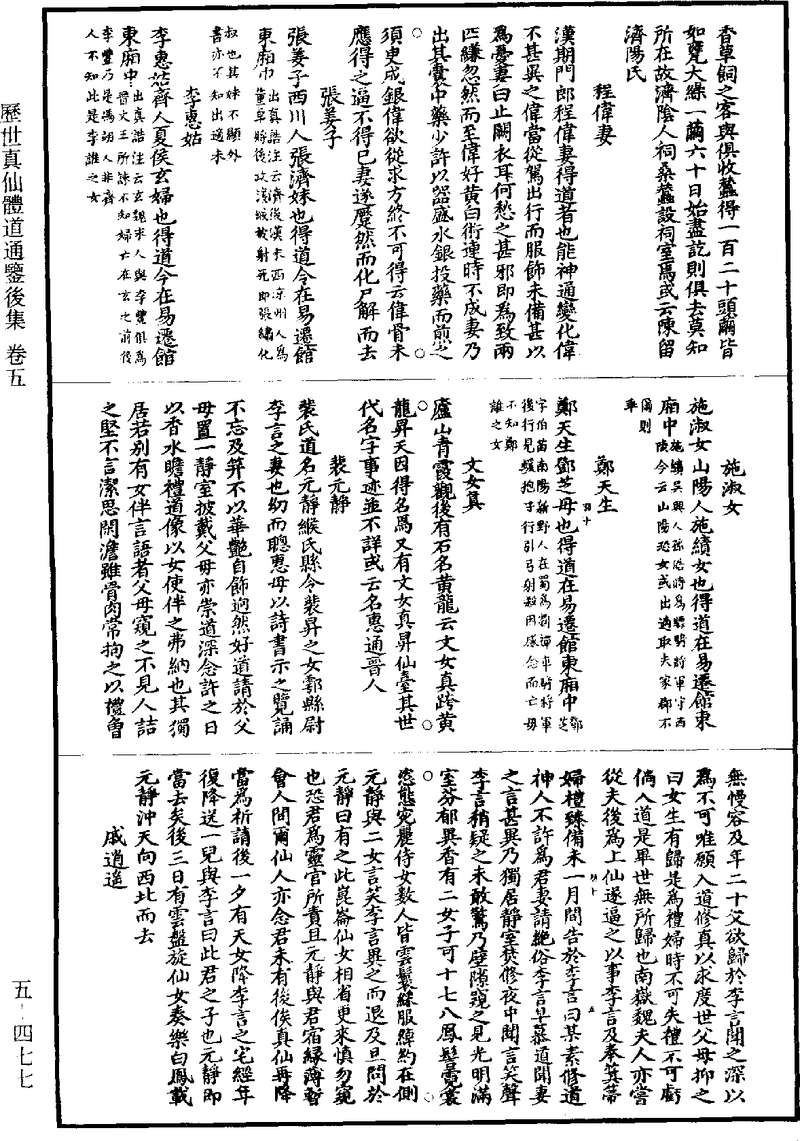 歷世真仙體道通鑒後集 卷五
香草飼之客與俱收蠶得一百二十頭繭皆
如甕大繰一繭六十日始盡訖則俱去莫知
所在故濟陰人祠桑蠶設祠室焉或云陳留
濟陽氏
程偉妻
漢期門郎程偉妻得道者也能神通變化偉
不甚異之偉當從駕出行而服飾未備甚以
為憂妻曰止闕衣耳何愁之甚邪即為致兩
匹縑忽然而至偉好黃白術連時不成妻乃
出其囊中藥少許以器盛水銀投藥而煎之
須臾成銀偉欲從求方終不可得云偉骨未
應得之逼不得已妻遂蹷然而化尸解而去
張姜子
張姜子西川人張濟妹也得道今在易遷館
東廂中
出真誥注云濟後漢末西涼州人為
董卓將後攻穰城被射死即張繡化
叔也其妹不顯外
書亦不知出適未
李惠姑
李惠姑齊人夏侯玄婦也得道今在易遷館
東廂中
出真誥注云玄魏末人與李豐俱為
晉文王所誅不知婦亡在玄之前後
李豐乃是馮翊人非齊
人不知此是李誰之女
施淑女
施淑女山陽人施績女也得道在易遷館東
廂中
施績吳興人孫皓時為驃騎將軍守西
陵今云山陽恐女或出適取夫家郡不
爾則
乖
鄭天生
鄭天生鄧芝母也得道在易遷館東廂中
鄧芝
字伯苗南陽新野人在蜀為劉禪車騎將軍
後行見猿抱子行引弓射殺因感念而亡母
不知鄭
誰之女
文女真
廬山青霞觀後有石名黃龍云文女真跨黃
龍昇天因得名焉又有文女真昇仙臺其世
代名字事迹並不詳或云名惠通晉人
裴元靜
裴氏道名元靜緱氏縣令裴昇之女鄠縣尉
李言之妻也幼而聰惠母以詩書示之覽誦
不忘及笄不以華艷自飾逈然好道請於父
母置一靜室披戴父母亦崇道深念許之日
以香水瞻禮道像以女使伴之弗納也其獨
居若別有女伴言語者父母窺之不見人詰
之堅不言潔思閑澹雖骨肉常拘之以禮會
無慢容及年二十父欲歸於李言聞之深以
為不可唯願入道修真以求度世父母抑之
曰女生有歸是為禮婦時不可失禮不可虧
倘入道是畢世無所歸也南嶽魏夫人亦嘗
從夫後為上仙遂逼之以事李言及奉箕帚
婦禮臻備未一月間告於李言曰某素修道
神人不許為君妻請絶俗李言早慕道聞妻
之言甚異乃獨居靜室焚修夜中聞言笑聲
李言稍疑之未敢驚乃壁隙窺之見光明滿
室芬郁異香有二女子可十七八鳳髻霓裳
姿態宛麗侍女數人皆雲鬟綵服綽約在側
元靜與二女言笑李言異之而退及旦問於
元靜曰有之此崑崙仙女相省更來慎勿窺
也恐君為靈官所責且元靜與君宿緣薄暫
會人間爾仙人亦念君未有後俟真仙再降
當為祈請後一夕有天女降李言之宅經年
復降送一兒與李言曰此君之子也元靜即
當去矣後三日有雲盤旋仙女奏樂白鳳載
元靜沖天向西北而去
戚逍遥
五-四七七